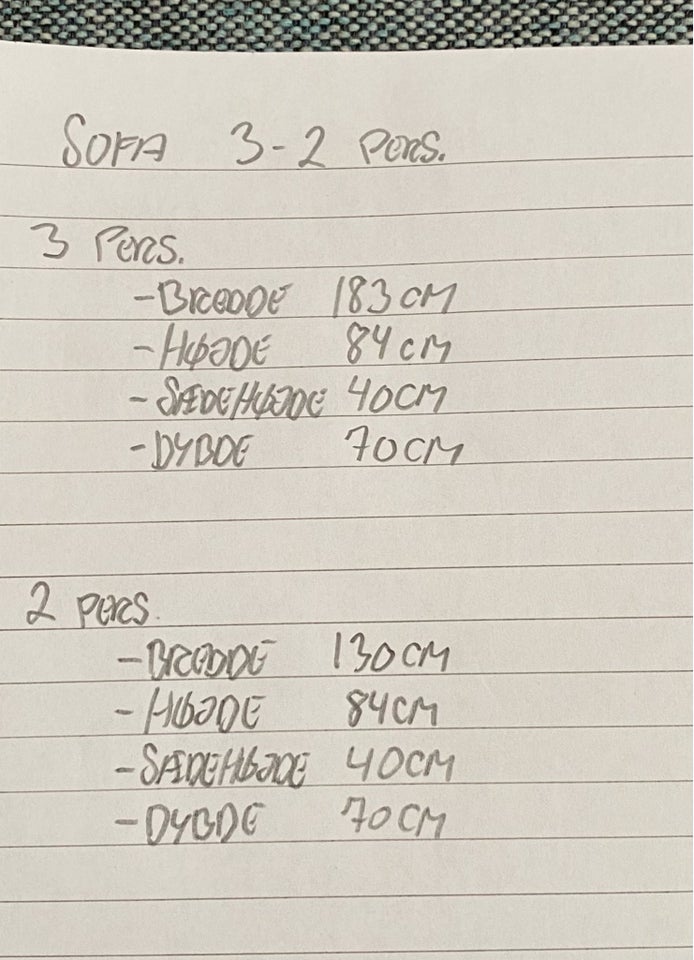 SOFA 3-2 PERS.
3 PERS.
-BREDDE 183 CM
-HØJDE 84 CM
-SÆDEHØJDE 40 CM
-DYBDE 70 CM
2 PERS.
-BREDDE 130 CM
-HØJDE 84 CM
-SÆDEHØJDE 40 CM
-DYBDE 70 CM